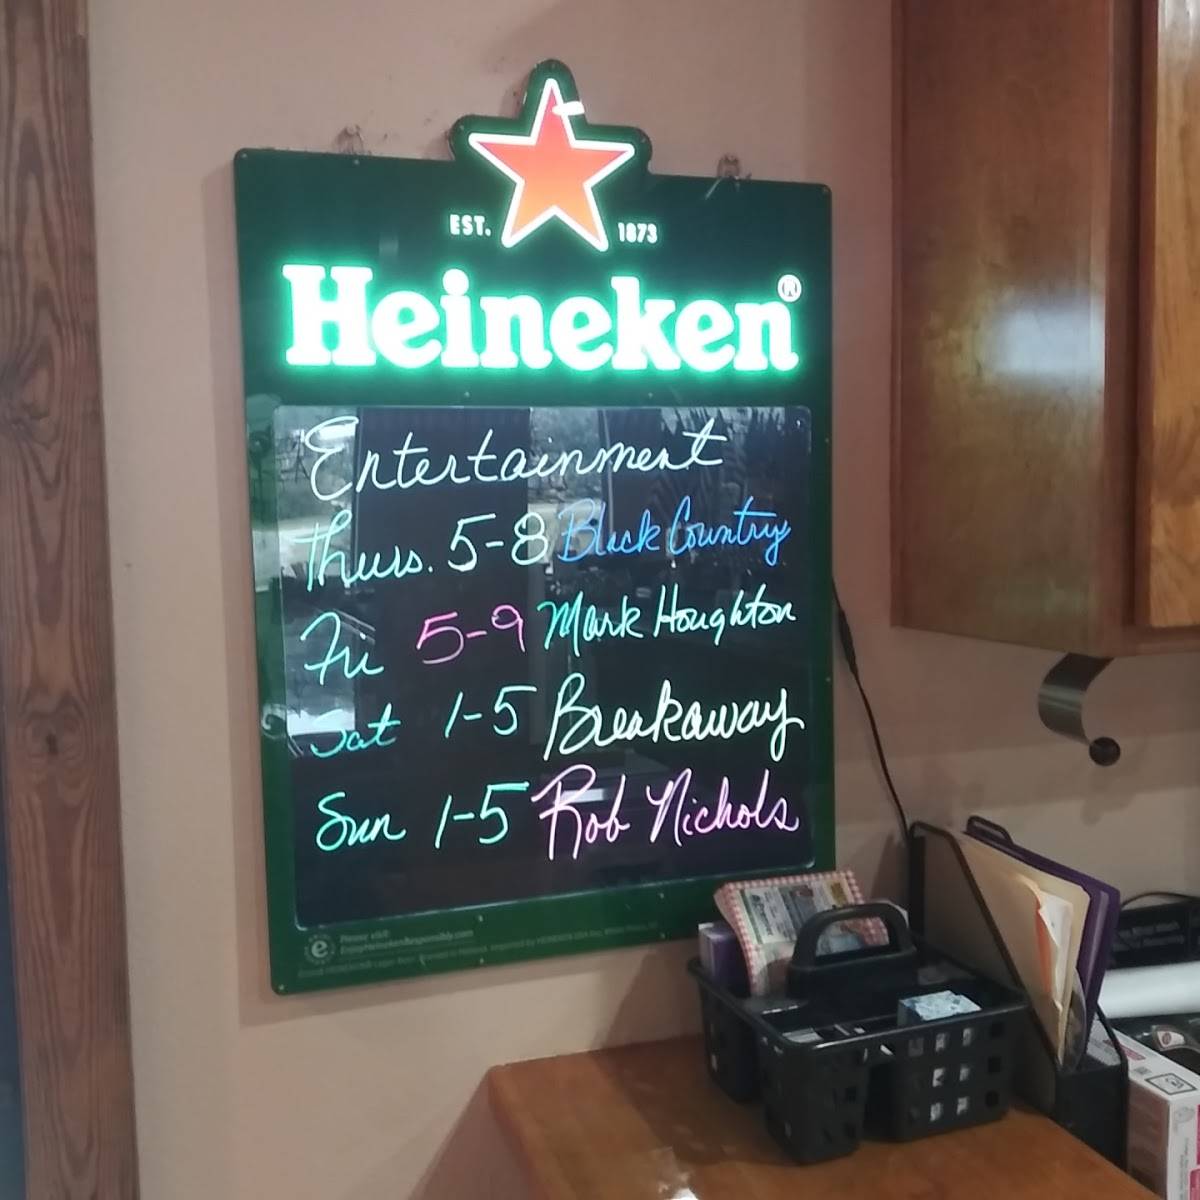 EST. 1873
Heineken®
Entertainment
Thurs. 5-8 Black Country
Fri 5-9 Mark Houghton
Sat 1-5 Breakaway
Sun 1-5 Rob Nichols
Please visit:
EnjoyHeinekenResponsibly.com